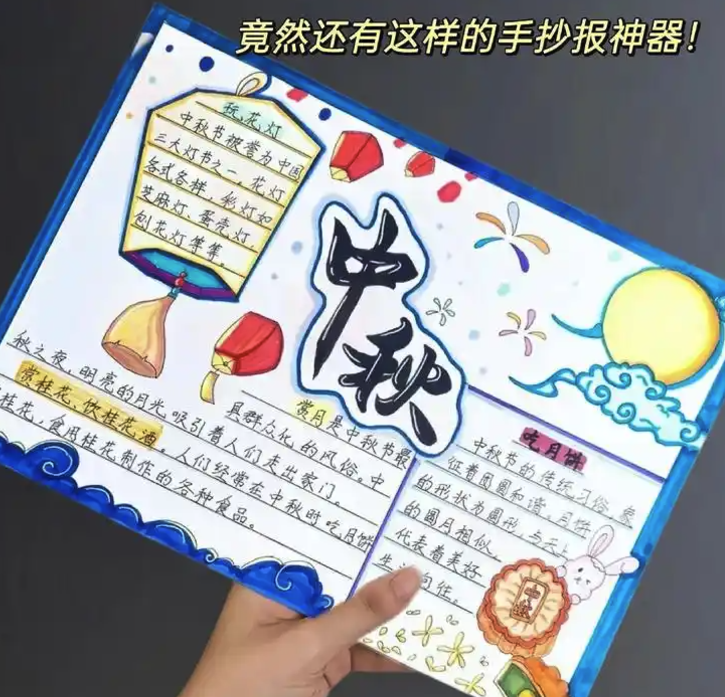 竟然还有这样的手抄报神器!
玩花灯
中秋节被誉为中国
三大灯节之一,花灯
各式各样,彩灯如
芝麻灯、蛋壳灯,
刨花灯等等。
中秋
秋之夜,明亮的月光,吸引着人们走出家门。
赏桂花、饮桂花酒。人们经常在中秋时吃月饼
桂花,食用桂花制作的各种食品。
赏月是中秋节最
且群众化的风俗。中
吃月饼
中秋节的传统习俗,象
征着团圆和谐,月饼
的形状为圆形,与天上
的圆月相似。
代表着美好
生 向往。
中秋